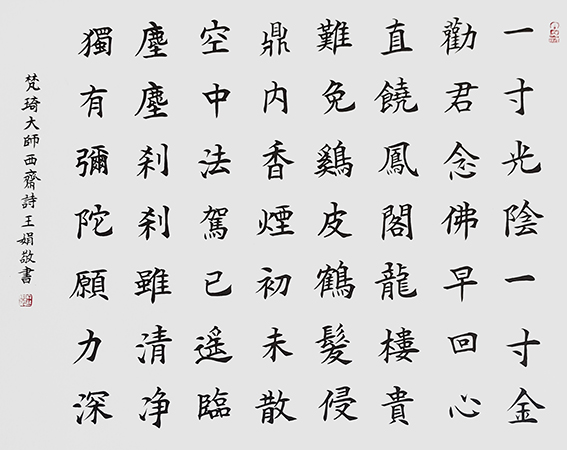 一寸光陰一寸金
勸君念佛早回心
直饒鳳閣龍樓貴
難免鷄皮鶴髮侵
鼎内香煙初未散
空中法駕已遥臨
塵塵刹刹雖清净
獨有彌陀願力深
梵琦大師西齋詩王娟敬書